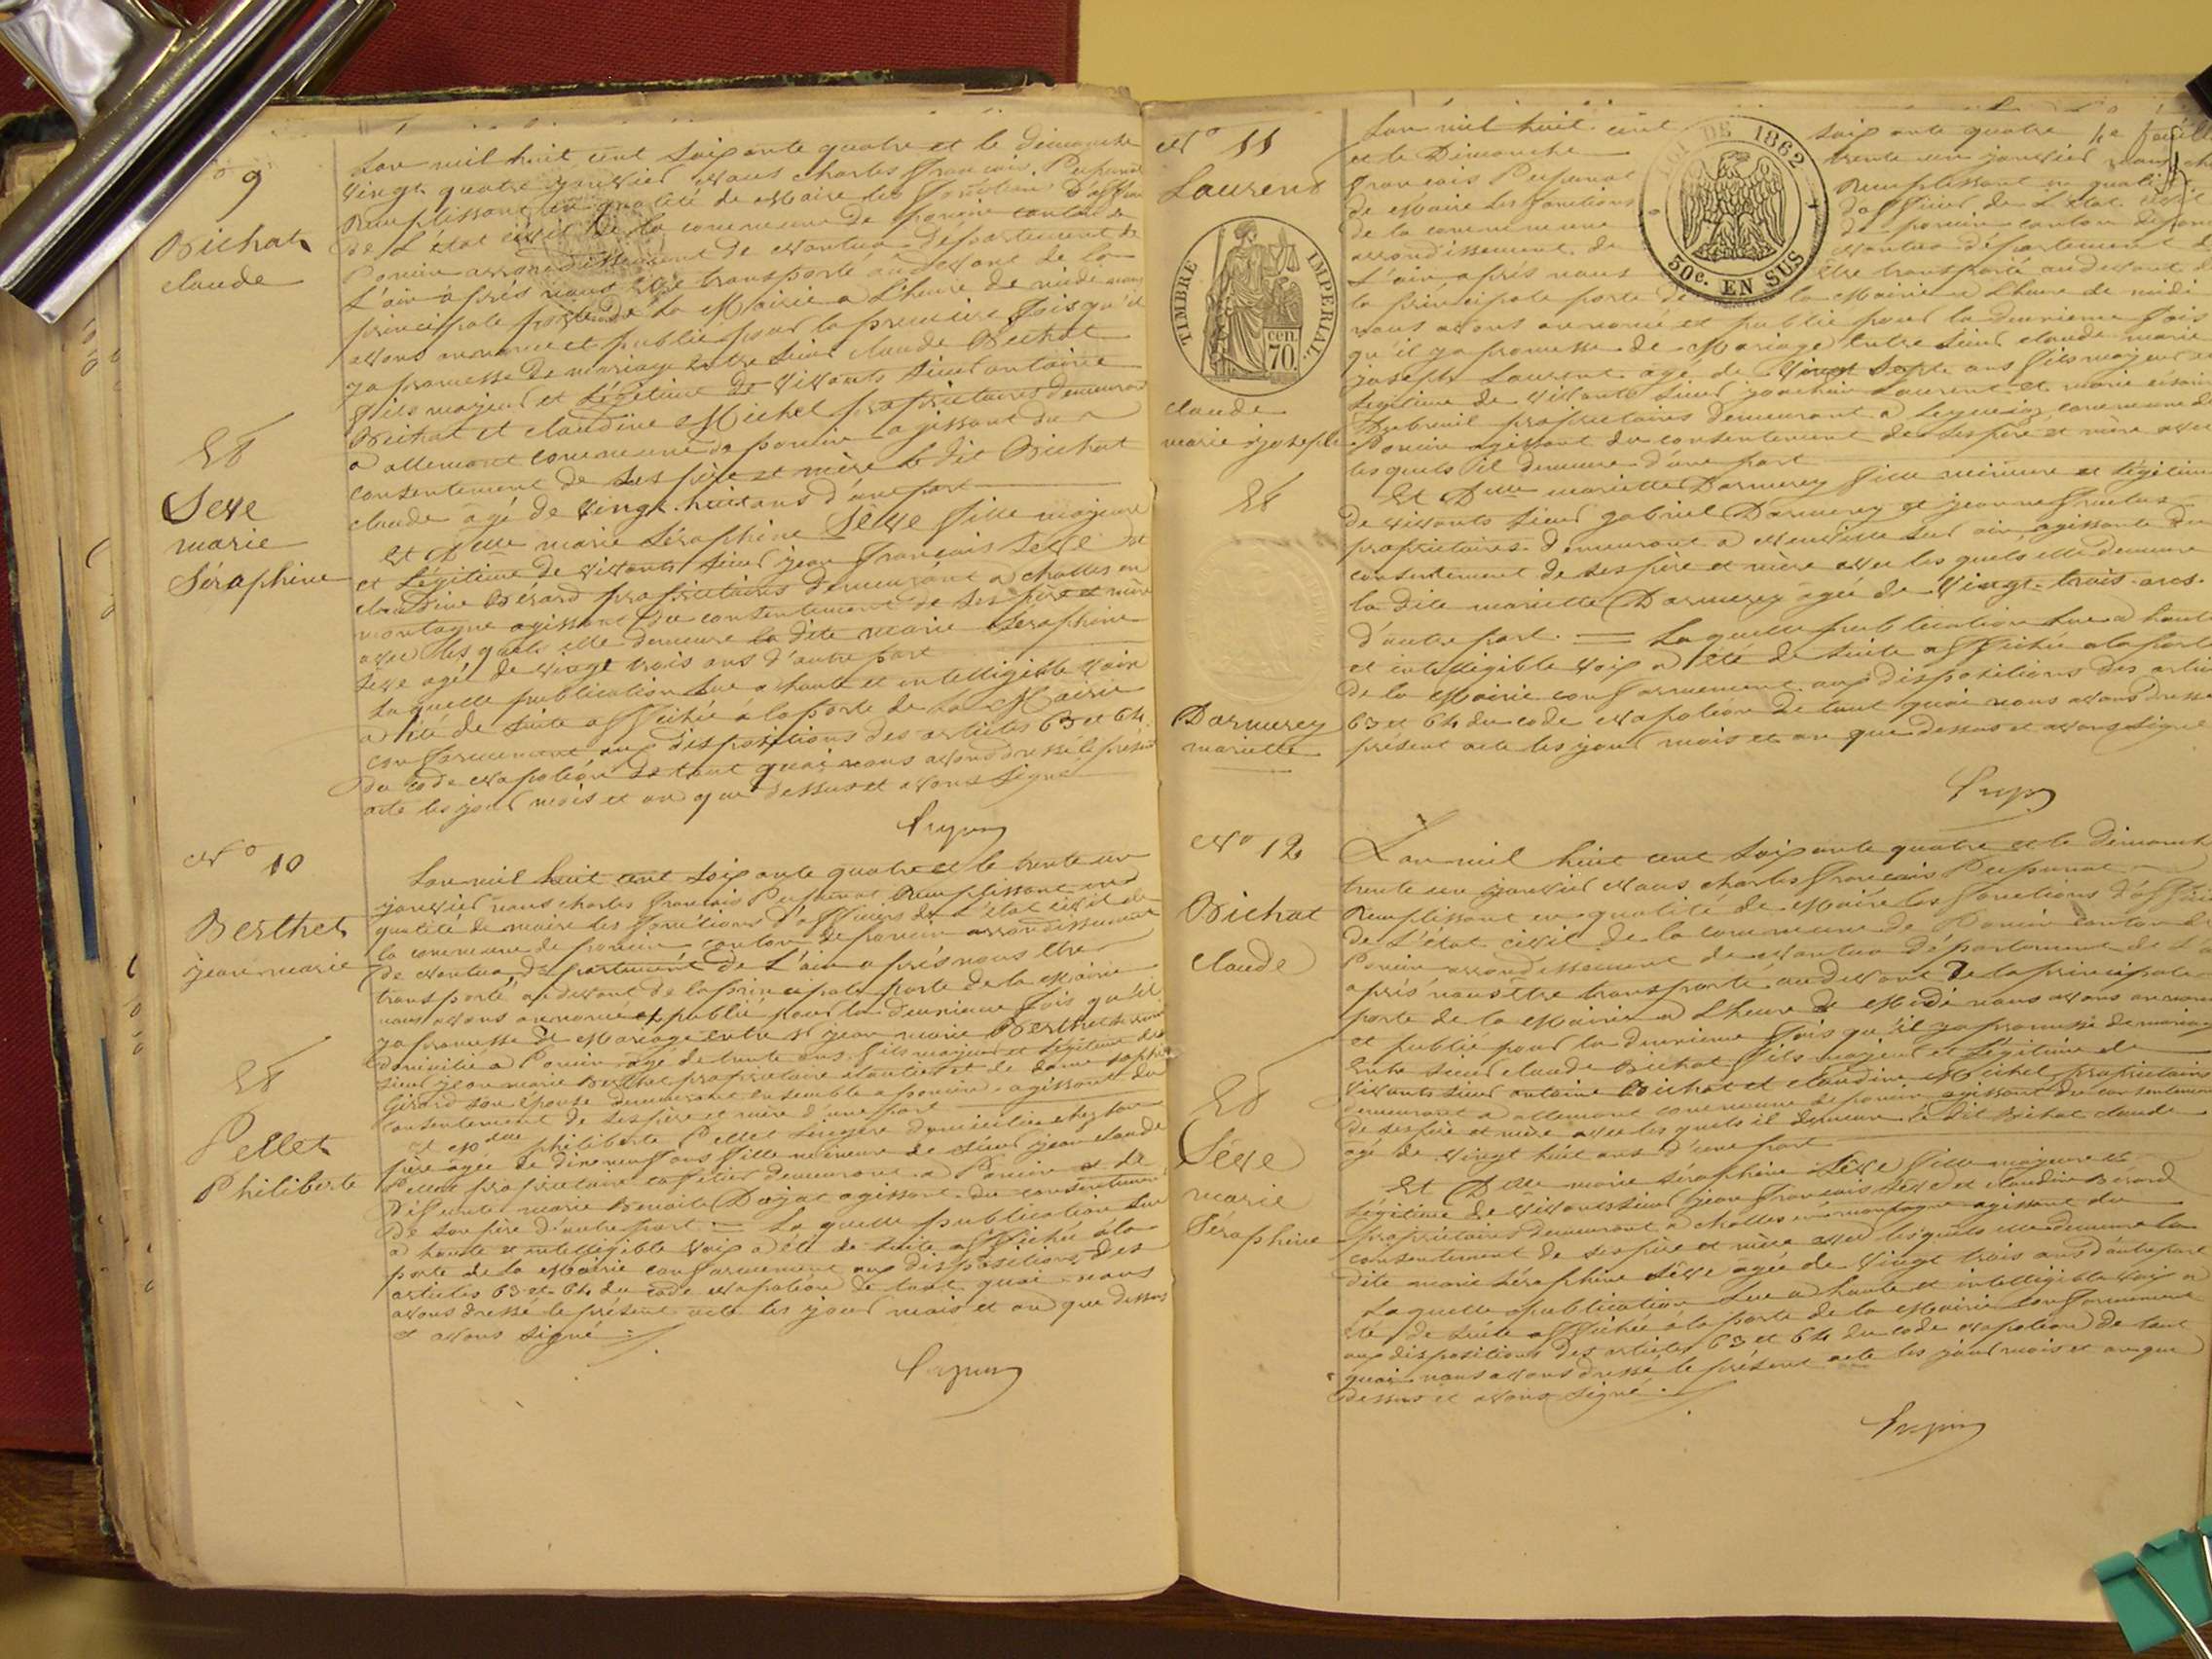 9
Bichat
claude
Et
Seve
marie
Séraphine
Lan mil huit cent soixante quatre et le dimanche
vingt quatre janvier nous charles françois
Remplissant en qualité de Maire les fonctions d'officier
de L'état civil de la commune de poncin canton de
Poncin arrondissement de nantua département de
L'ain après nous être transporté audevant de la
principale porte de la Mairie a L'heure de midi nous
avons annoncé et publié pour la première fois qu'il
ya promesse de mariage entre sieur claude Bichat
fils majeur et Légitime de vivants sieur antoine
Bichat et claudine Michel propriétaires demeurant
a allement commune de poncin agissant du
consentement de ses père et mère le dit Bichat
claude âgé de vingt huit ans d'une part
Et Delle marie Séraphine Sève fille majeure
et Légitime de vivants sieur jean françois Seve et
claudine Bérard propriétaires demeurant a challes en
montagne agissant du consentement de ses père et mère
avec les quels elle demeure la dite marie Séraphine
Seve agée de vingt trois ans d'autre part
La quelle publication Lue a haute et intelligible voix
a été de suite affichée à la porte de la Mairie
conformement aux dispositions des articles 63 et 64
du code napoléon de tout quoi nous avons dressé le présent
acte les jour mois et an que dessus et avons signé
N° 10
Berthet
jean marie
Et
Pellet
Philiberte
Lan mil huit cent soixante quatre et le trente un
janvier nous charles françois Remplissant en
qualité de maire les fonctions d'officiers de L'état civil de
la commune de poncin canton de poncin arrondissement
de nantua département de L'ain après nous être
transporté audevant de la principale porte de la Mairie
nous avons annoncé et publié pour la deuxieme fois qu'il
ya promesse de Mariage entre sr jean marie Berthet
domicilié a Poncin âgé de trente ans fils majeur et légitime de
sieur jean marie Berthet propriétaire et de dame
Girard son épouse demeurant ensemble a poncin agissant du
consentement de ses père et mère d'une part
Et philiberte Pellet Lingère domiciliée chez son
père agée de dix neuf ans fille mineure de sieur jean claude
Pellet propriétaire demeurant a Poncin et de
défunte marie Benoite agissant du consentement
de son père d'autre part = La quelle publication Lue
a haute et intelligible voix a été de suite affichée à la
porte de la Mairie conformement aux dispositions des
articles 63 et 64 du code napoléon de tout quoi nous
avons dressé le présent acte les jour mois et an que dessus
et avons signé
N° 11
Laurent
TIMBRE IMPERIAL
cen.
70.
claude
marie joseph
Et
Darmerey
mariette
LOI DE 1862
50c. EN SUS
Lan mil huit cent soixante quatre
et le Dimanche trente un janvier nous
françois Remplissant en qualité
de Maire les fonctions d'officier de L'état civil
de la commune de poncin canton de
arrondissement de nantua département
L'ain après nous être transporté audevant
la principale porte de la Mairie a L'heure de midi
nous avons annoncé et publié pour la deuxieme fois
qu'il ya promesse de Mariage entre sieur claude marie
joseph Laurent agé de vingt sept ans fils majeur
Légitime de vivants sieur joachim Laurent et marie
Dubreuil propriétaires demeurant a commune de
Poncin agissant du consentement de ses père et mère avec
les quels il demeure d'une part
Et Delle mariette Darmerey fille mineure et légitime
de vivants sieur gabriel Darmerey et jeanne
propriétaires demeurant a neuville sur ain agissante du
consentement de ses père et mère avec les quels elle demeure
la dite mariette Darmerey âgée de vingt-trois ans.
d'autre part. = La quelle publication Lue a haute
et intelligible voix a été de suite affichée à la porte
de la Mairie conformement aux dispositions des
63 et 64 du code napoléon de tout quoi nous avons dressé
présent acte les jour mois et an que dessus et avons signé
N° 12
Bichat
claude
Et
Sève
marie
Séraphine
Lan mil huit cent soixante quatre et le Dimanche
trente un janvier nous charles françois
Remplissant en qualité de Maire les fonctions d'officier
de L'état civil de la commune de Poncin canton de
Poncin arrondissement de nantua département de L'ain
après nous être transporté audevant de la principale
porte de la Mairie a L'heure de Midi nous avons annoncé
et publié pour la deuxieme fois qu'il ya promesse de mariage
entre sieur claude Bichat fils majeur et Légitime de
vivants sieur antoine Bichat et claudine Michel propriétaires
demeurant a allement commune de poncin agissant du consentement
de ses père et mère avec les quels il demeure le dit Bichat claude
agé de vingt huit ans d'une part
Et Delle marie séraphine Sève fille majeure et
Légitime de vivants sieur jean francois Seve et claudine Bérard
propriétaires demeurant a challes en montagne agissant du
consentement de ses père et mère avec lesquels elle demeure la
dite marie séraphine Sève agée de vingt trois ans d'autre part
La quelle publication Lue a haute et intelligible voix a
été de suite affichée à la porte de la Mairie conformement
aux dispositions des articles 63 et 64 du code napoléon de tout
quoi nous avons dressé le présent acte les jour mois et an que
dessus et avons signé